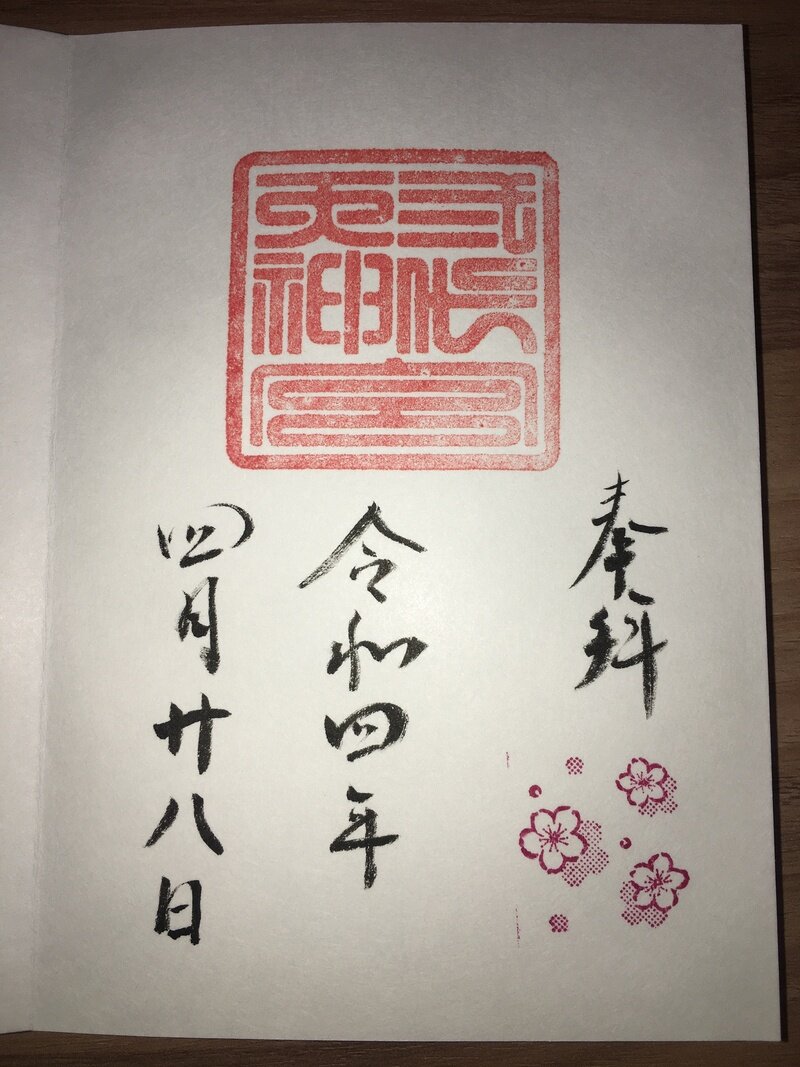 天神宮
奉拝
令和四年
四月廿八日